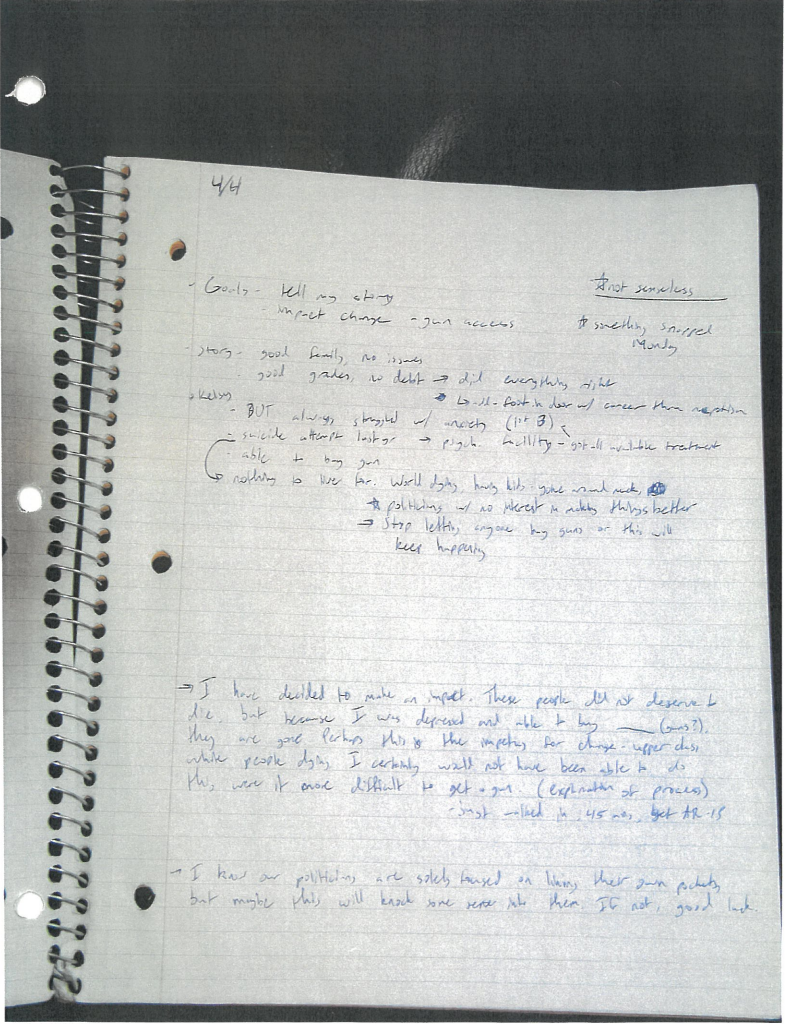 4/4
- Goals - tell my story
☆ not senseless
- impact change - gun access
☆ something snapped
Monday
- Story - good family, no issues
- good grades, no debt → did everything right
↳ - foot in door w/ career
- BUT always struggled w/ anxiety (1 of 3)
- suicide attempt last yr → psych. facility - got all available treatment
- able to buy gun
→ nothing to live for. World dying, having kids
☆ politicians w/ no interest in making things better
→ Stop letting anyone buy guns or this will
keep happening
→ I have decided to make an impact. These people did not deserve to
die, but because I was depressed and able to buy ____ (guns?),
they are gone. Perhaps this is the impetus for change - upper class
white people dying. I certainly would not have been able to do
this, were it more difficult to get a gun. (explanation of process)
- Just walked in, 45 mins, get AR-15
→ I know our politicians are solely focused on lining their own pockets,
but maybe this will knock some sense into them. If not, good luck.